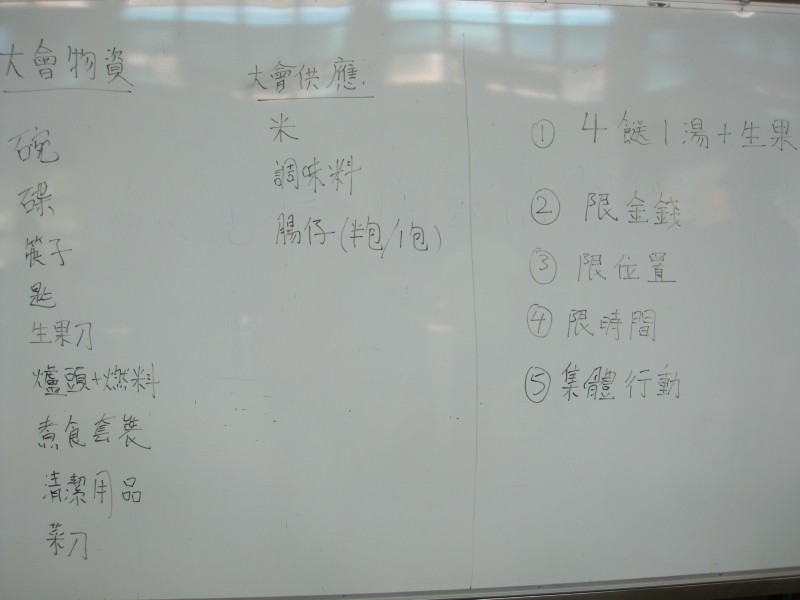 大會物資
碗
碟
筷子
匙
生果刀
爐頭+燃料
煮食套裝
清潔用品
菜刀
大會供應.
米
調味料
腸仔(半包/1包)
① 4餸1湯+生果
② 限金錢
③ 限位置
④ 限時間
⑤ 集體行動